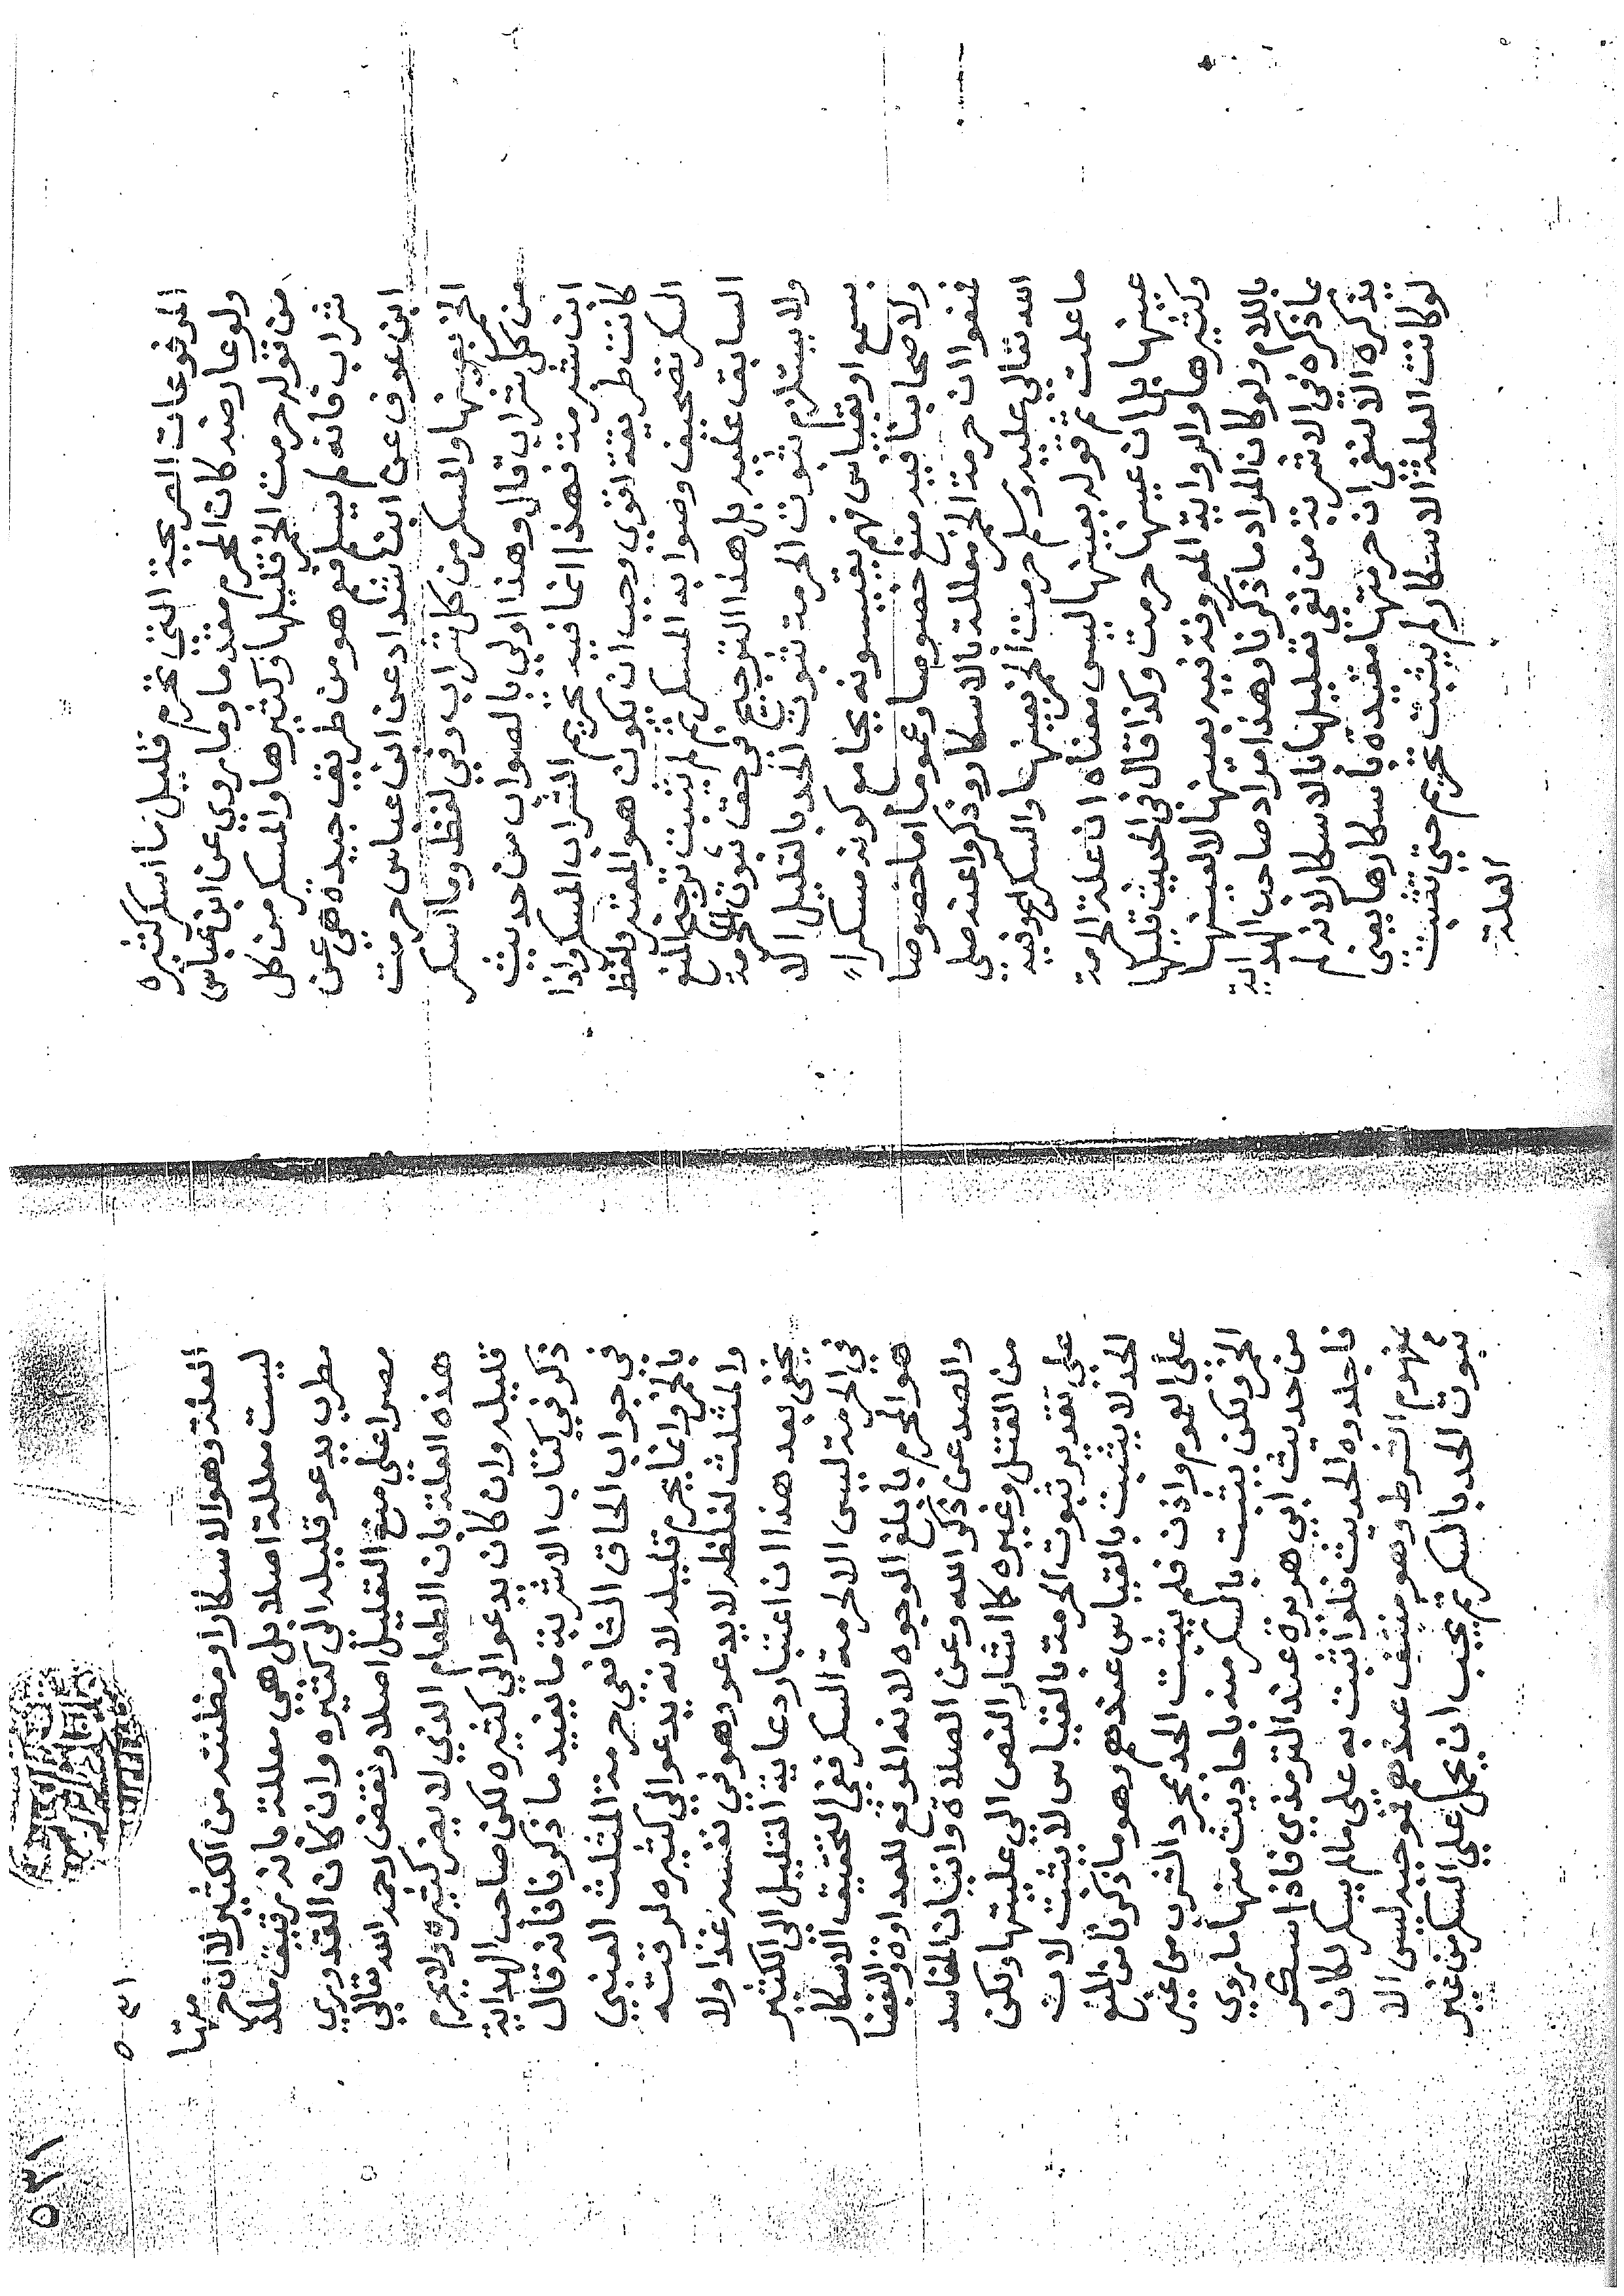 المرفوعات الصريحة التي تحرم قليل ما اسكر كثيره
ولو عارضه كان المحرم مقدما وما روي عن ابن عباس
من قوله حرمت الخمر قليلها وكثيرها والمسكر من كل
شراب فانه لم يسلم نعم هو من طريق جيدة هي عن
ابن عوف عن ابن شداد عن ابن عباس حرمت
الخمر بعينها والمسكر من كل شراب وفي لفظ وما اسكر
من كل شراب قال وهذا اولي بالصواب من حديث
ابن شبرمة فهذا انما فيه تحريم الشراب المسكر واذا
كانت طريقه اقوي وجب ان يكون هو المعتبر ولفظ
السكر تصحيف وصوابه المسكر ثم لم يثبت ترجيح المنع
السابق عليه بل هذا الترجيح في حق ثبوت الحرمة
ولا يستلزم ثبوت الحرمة ثبوت الحد بالقليل الا
بسمع او بقياس فهم يقيسونه بجامع كونه مسكرا
ولاصحابنا فيه منع خصوصا وعموما اما خصوصا
فمنعوا ان حرمة الخمر معللة بالاسكار وذكروا عنه صلى
الله تعالي عليه وسلم حرمت الخمر بعينها والسكر الخ وفيه
ما علمت ثم قوله بعينها ليس معناه ان علة الحرمة
عينها بل ان عينها حرمت وكذا قال في الحديث قليلها
وكثيرها والرواية المعروفة فيه بعينها بالباء لا لعينها
باللام ولو كان المراد ما ذكرنا وهذا مراد صاحب الهداية
بما ذكره في الاشربة من نفي تعليلها بالاسكار لانه لم
يذكره الا لنفي ان حرمتها مقيدة باسكارها يعني
لو كانت العلة الاسكار لم يثبت تحريم حتي تثبت
العلة
٥٣١
العلة وهو الاسكار او مظنته من الكثير لا ان حرمتها
ليست معللة اصلا بل هي معللة بانه رقيق ملذ
مطرب يدعو قليله الي كثيره وان كان القدوري
مصرا علي منع التعليل اصلا ونقض رحمه الله تعالي
هذه العلة بان الطعام الذي لا يضر كثيره لا يحرم
قليله وان كان يدعو الي كثيره لكن صاحب الهداية
ذكر في كتاب الاشربة ما يفيد ما ذكرنا فانه قال
في جواب الحاق الشافعي حرمة المثلث العنبي
بالخمر وانما يحرم قليله لانه يدعو الي كثيره لرقته
والمثلث لغلظه لا يدعو وهو في نفسه غذا ولا
يخفى بعد هذا ان اعتبار دعاية القليل الي الكثير
في الحرمة ليس الا لحرمة السكر ففي التحقيق الاسكار
هو المحرم بابلغ الوجوه لانه الموقع للعداوة والبغضا
والصد عن ذكر الله وعن الصلاة واتيان المفاسد
من القتل وغيره كما اشار النص الي عليتها ولكن
علي تقدير ثبوت الحرمة بالقياس لا يثبت لان
الحد لا يثبت بالقياس عندهم وهو ما ذكرنا من المنع
علي العموم واذن فلم يثبت الحد بمجرد الشرب من غير
الخمر ولكن يثبت بالسكر منه باحاديث منها ما روي
من حديث ابي هريرة عند الترمذي فاذا سكر
فاجلدوه الحديث فلو اثبت به علي ما لم يسكر لكان
بمفهوم الشرط وهو منتف عندهم فموجبه ليس الا
ثبوت الحد بالسكر ثم يجب ان يحمل علي السكر من غير